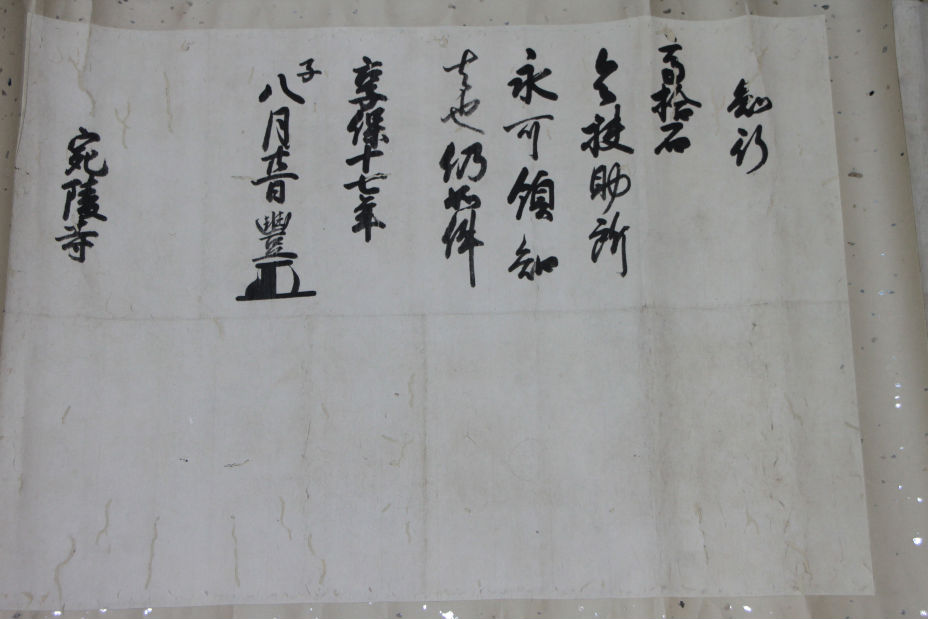 知行
高拾石
令扶助所
永可領知
者也仍如件
享保十七年
子
八月廿八日 豐
宛陵寺